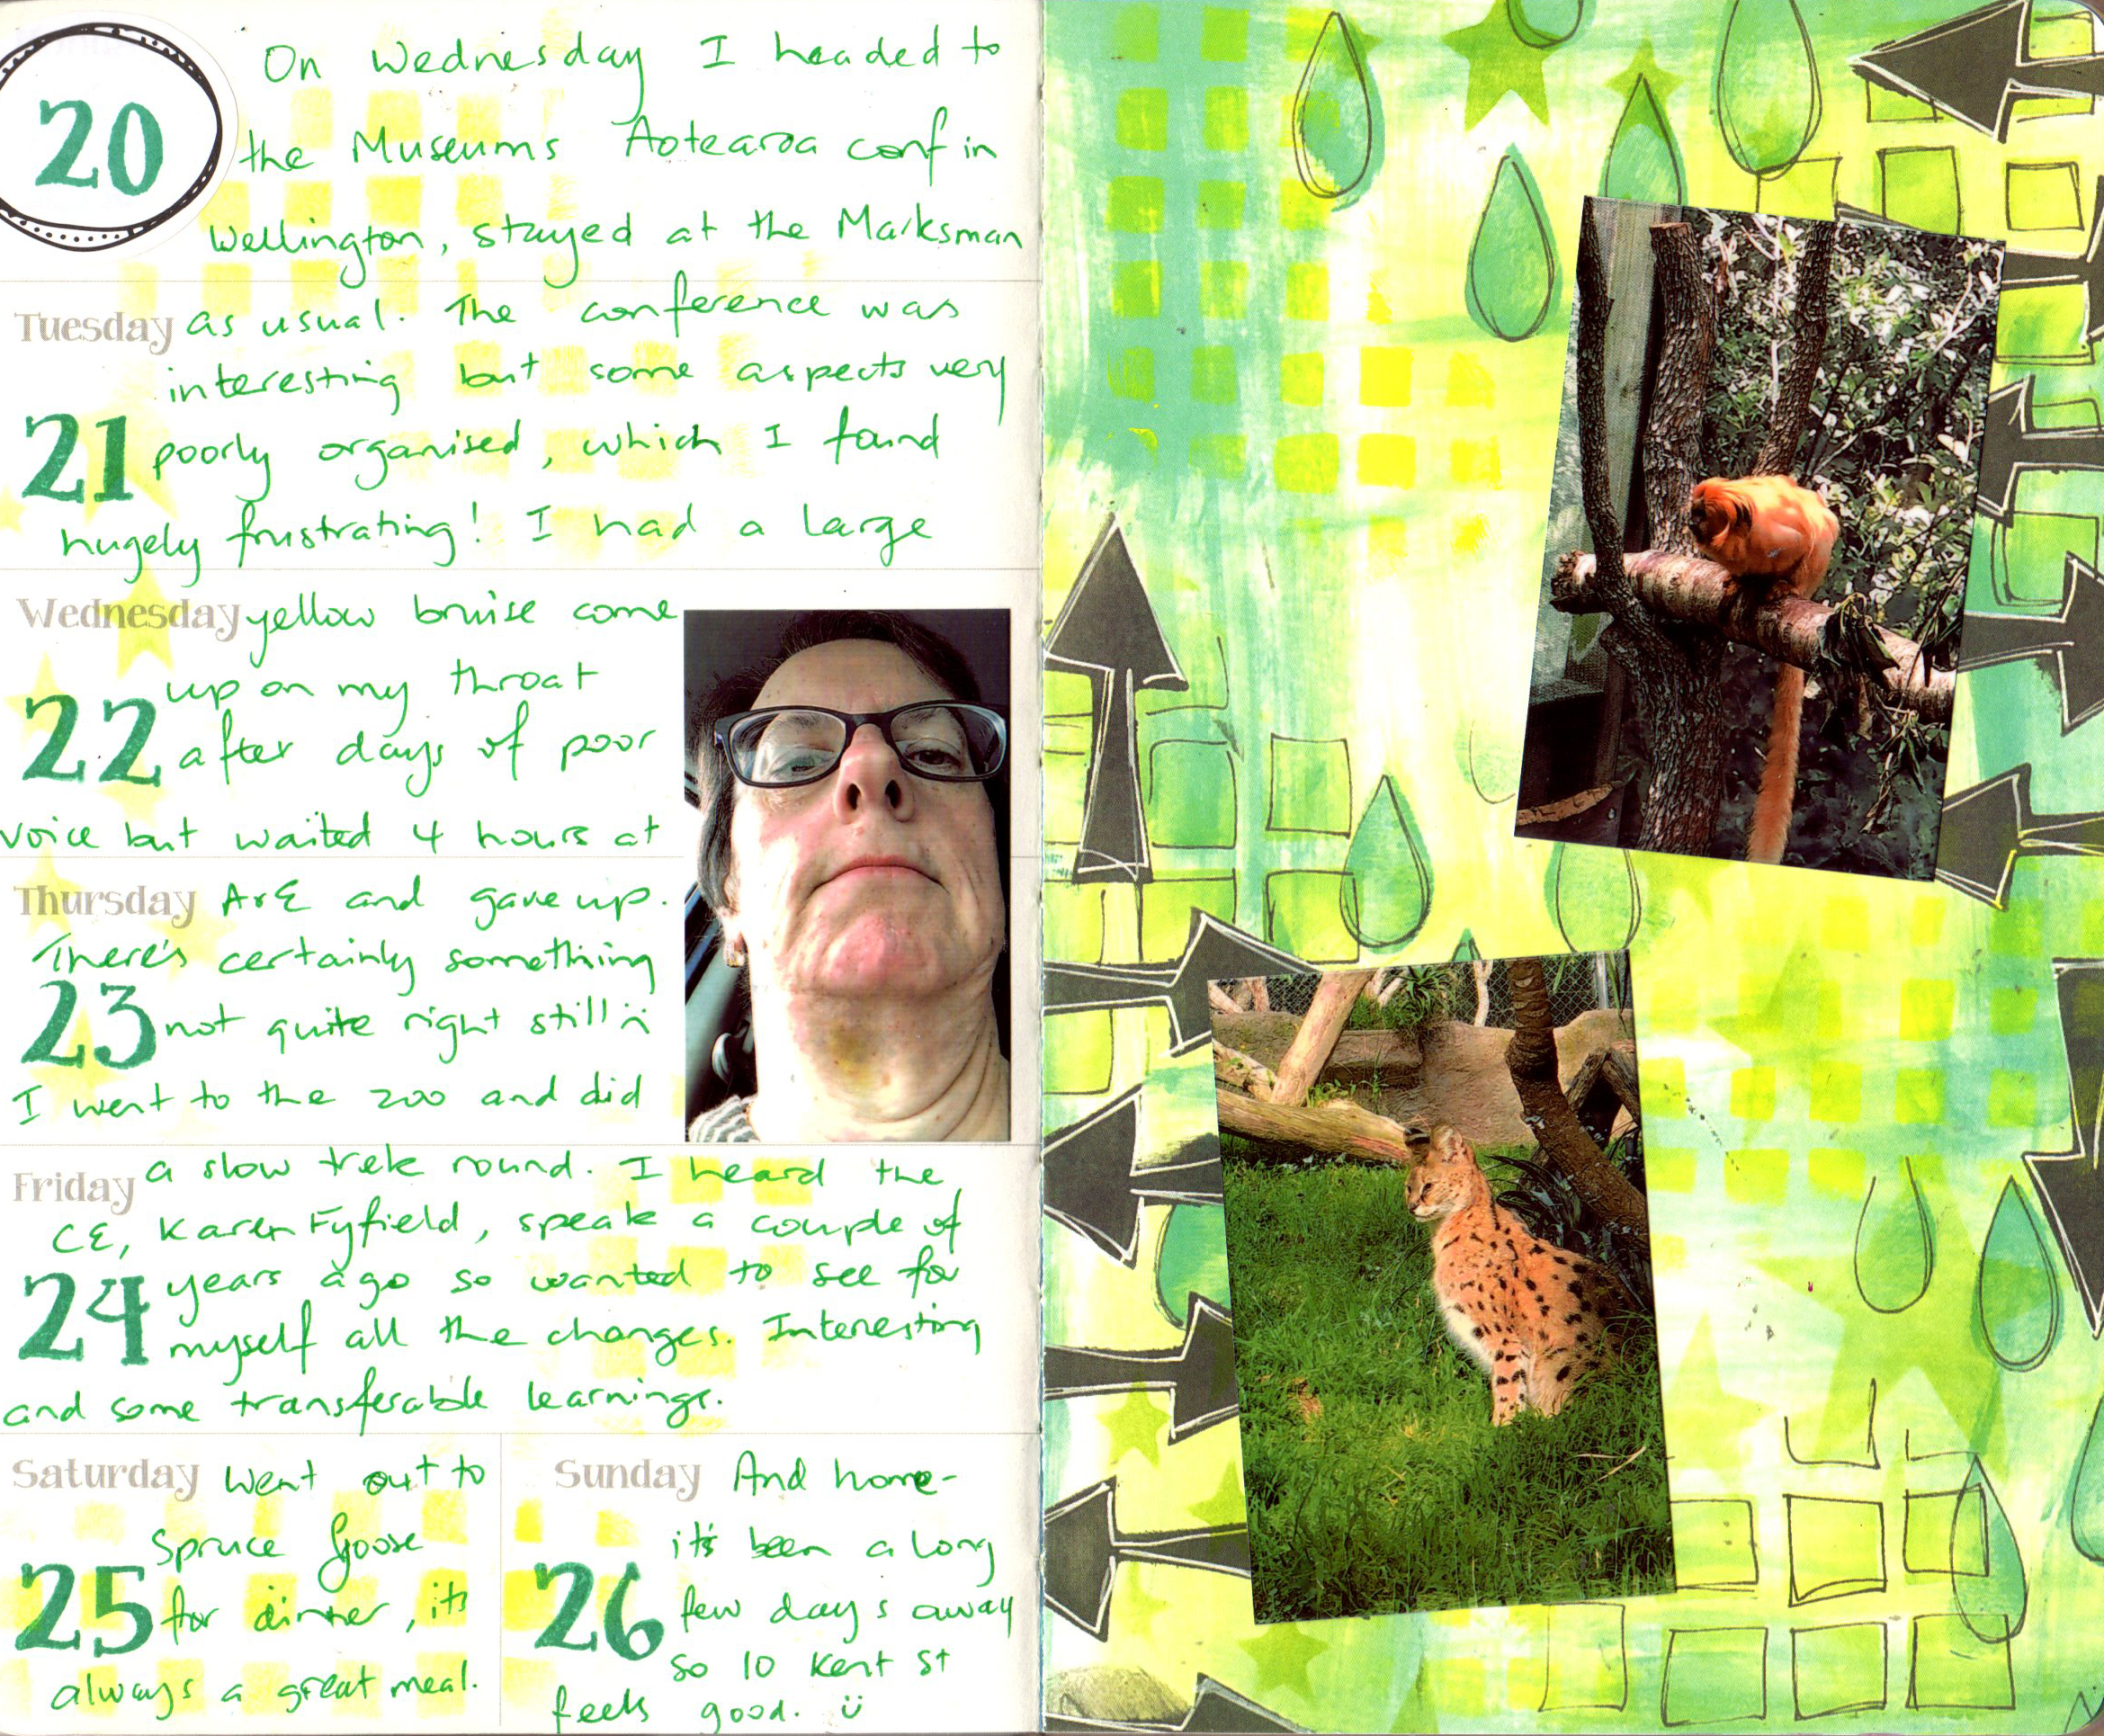 20
On Wednesday I headed to
the Museums Aotearoa conf in
Wellington, stayed at the Marksman
Tuesday as usual. The conference was
interesting but some aspects very
21 poorly organised, which I found
hugely frustrating! I had a large
Wednesday yellow bruise come
up on my throat
22 after days of poor
voice but waited 4 hours at
Thursday A&E and gave up.
There's certainly something
23 not quite right still :(
I went to the zoo and did
Friday a slow trek round. I heard the
CE, Karen Fyfield, speak a couple of
24 years ago so wanted to see for
myself all the changes. Interesting
and some transferable learnings.
Saturday Went out to
Spruce Goose
25 for dinner, it's
always a great meal.
Sunday And home-
it's been a long
26 few days away
so 10 Kent St
feels good. :)